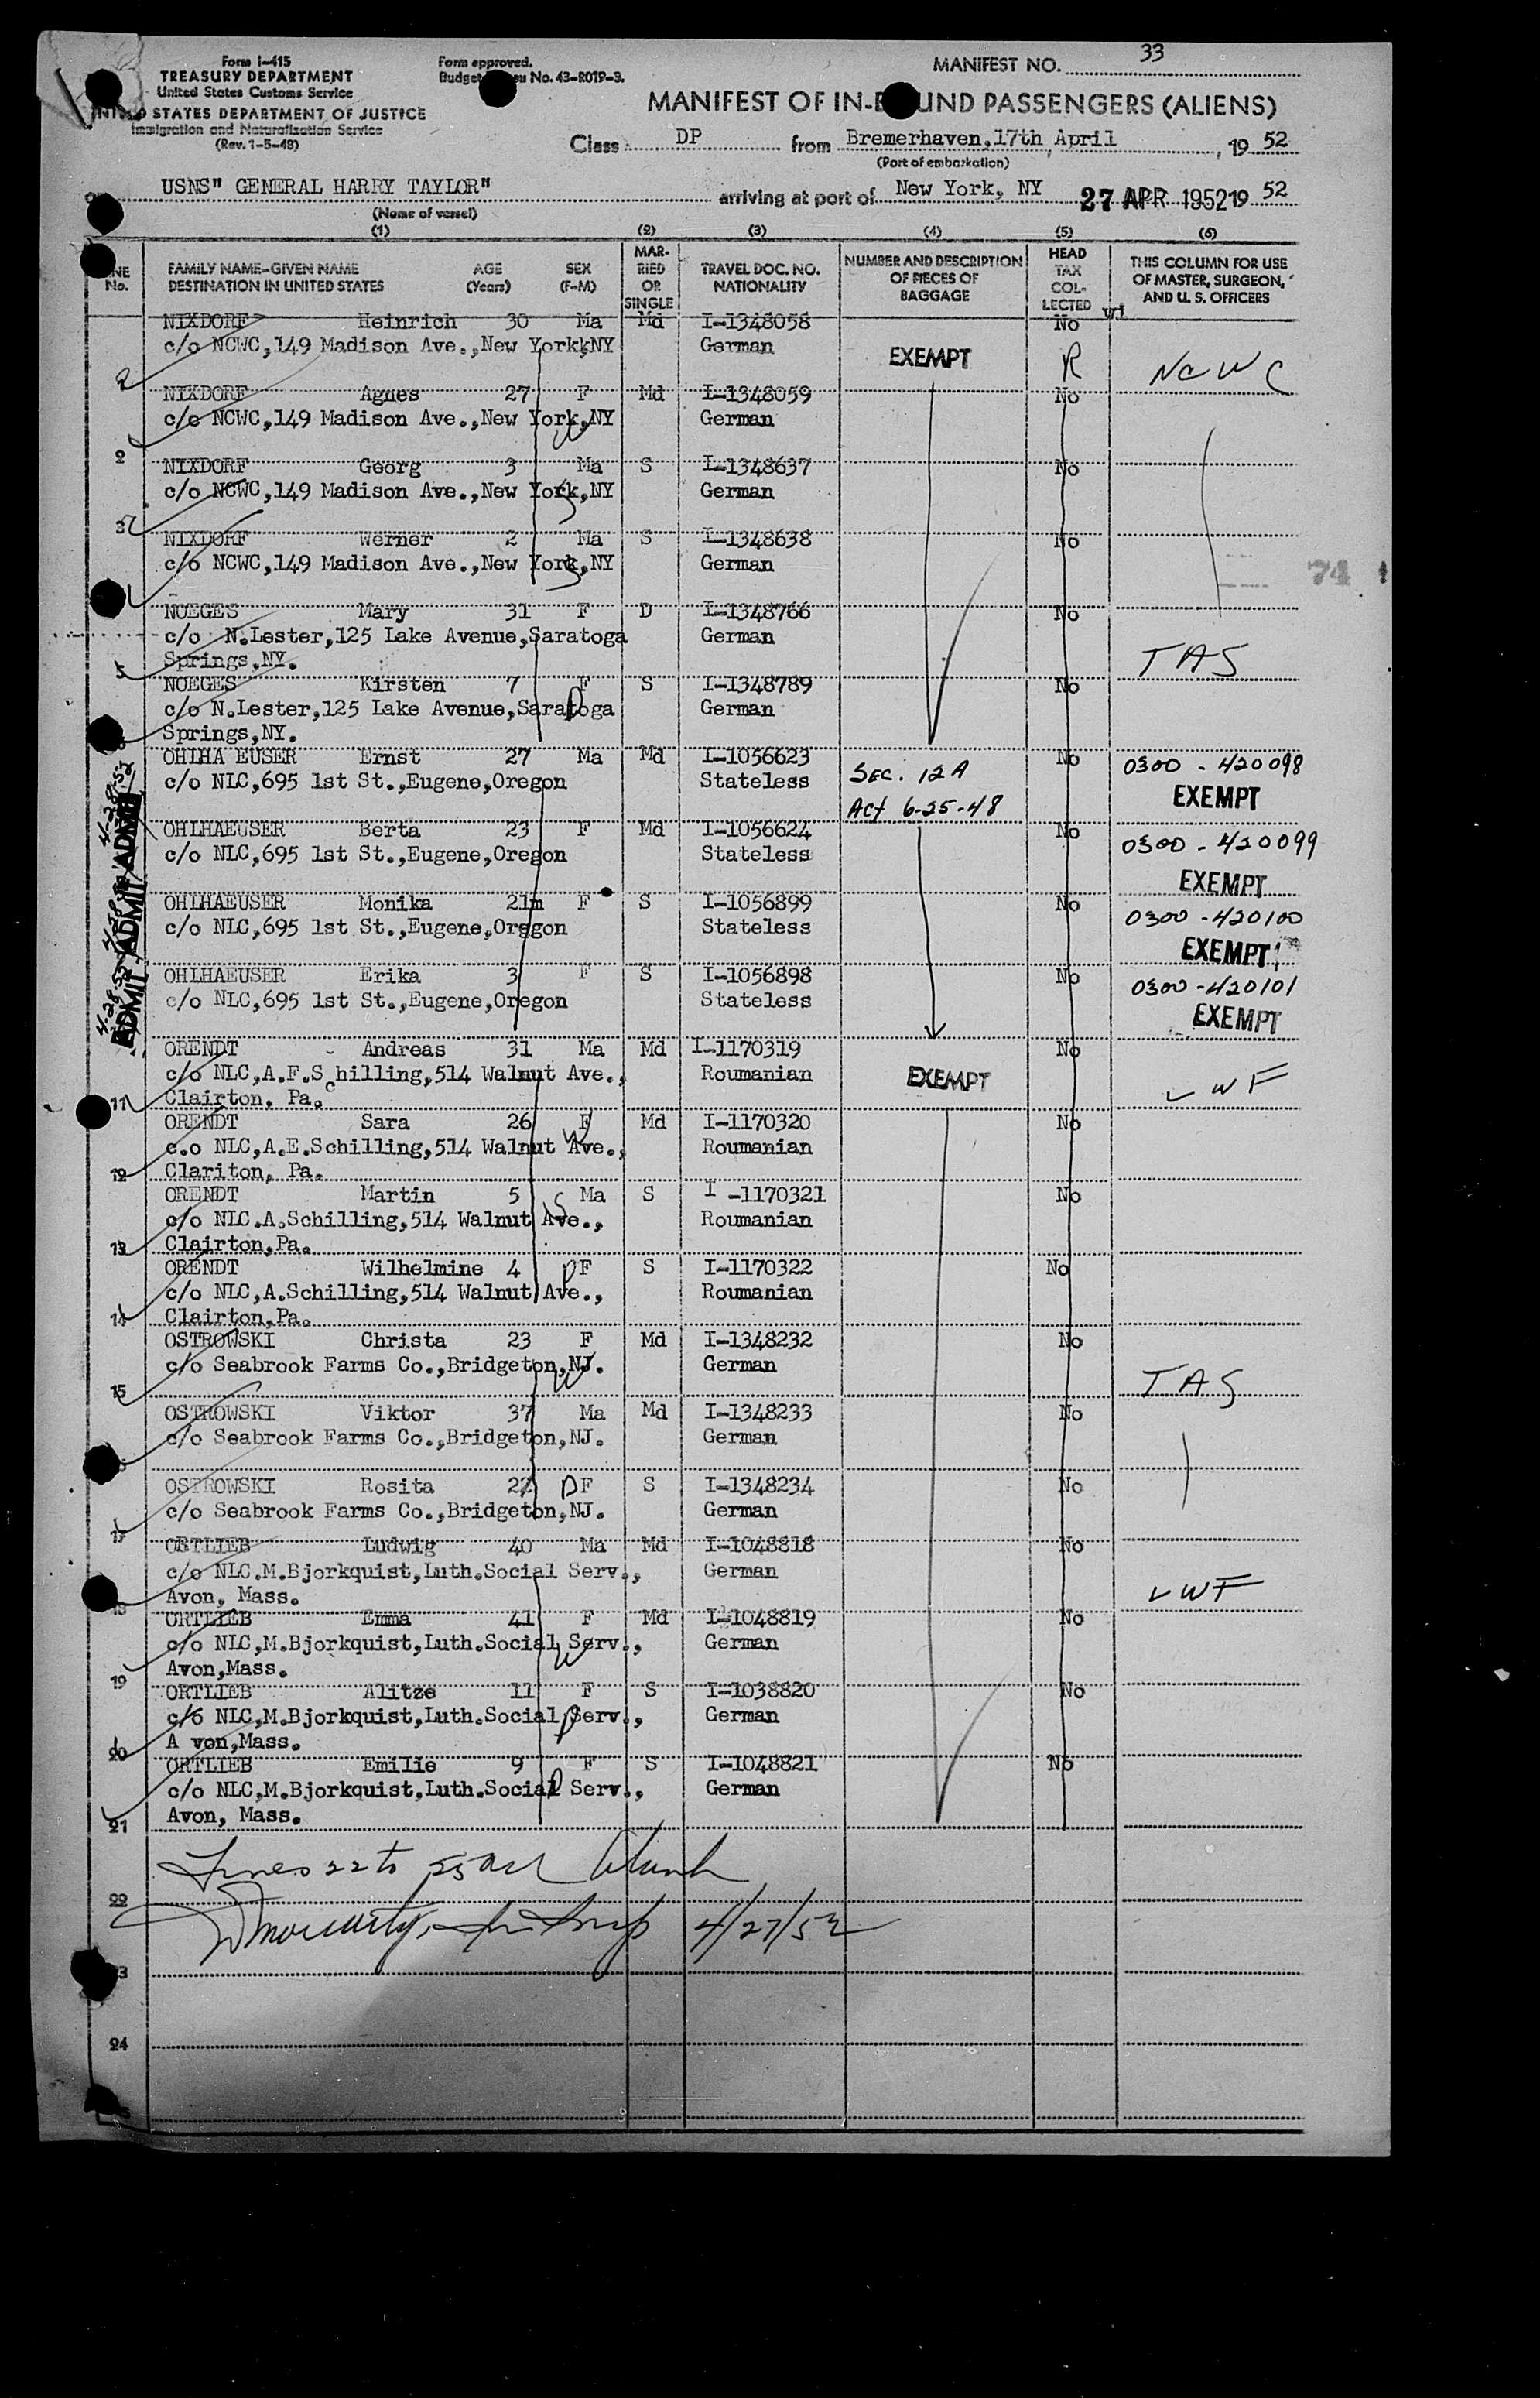 33
Form I-415
TREASURY DEPARTMENT
United States Customs Service
STATES DEPARTMENT OF JUSTICE
Immigration and Naturalization Service
(Rev. 1-5-48)
Form approved.
Budget No. 43-R019-3.
MANIFEST NO.
MANIFEST OF IN-BOUND PASSENGERS (ALIENS)
Class DP from Bremerhaven,17th April, 19 52
(Port of embarkation)
USNS" GENERAL HARRY TAYLOR" arriving at port of New York, NY 27 APR 1952 19 52
(Name of vessel)
(1) (2) (3) (4) (5) (6)
No. FAMILY NAME-GIVEN NAME DESTINATION IN UNITED STATES AGE (Years) SEX (F-M) MARRIED OR SINGLE TRAVEL DOC. NO. NATIONALITY NUMBER AND DESCRIPTION OF PIECES OF BAGGAGE HEAD TAX COLLECTED THIS COLUMN FOR USE OF MASTER, SURGEON, AND U. S. OFFICERS
NIXDORF Heinrich 30 Ma Md I-1348058 No
c/o NCWC,149 Madison Ave.,New York,NY German EXEMPT R NCWC
NIXDORF Agnes 27 F Md I-1348059 No
c/o NCWC,149 Madison Ave.,New York,NY German
2 NIXDORF Georg 3 Ma S I-1348637 No
c/o NCWC,149 Madison Ave.,New York,NY German
3 NIXDORF Werner 2 Ma S I-1348638 No
c/o NCWC,149 Madison Ave.,New York,NY German
74
NOEGES Mary 31 F D I-1348766 No
c/o N.Lester,125 Lake Avenue,Saratoga German
5 Springs,NY. TAS
NOEGES Kirsten 7 F S I-1348789 No
c/o N.Lester,125 Lake Avenue,Saratoga German
Springs,NY.
OHIHA EUSER Ernst 27 Ma Md I-1056623 No 0300 - 420098
c/o NLC,695 1st St.,Eugene,Oregon Stateless Sec. 12A EXEMPT
Act 6-25-48
OHLHAEUSER Berta 23 F Md I-1056624 No 0300 - 420099
c/o NLC,695 1st St.,Eugene,Oregon Stateless
EXEMPT
OHLHAEUSER Monika 21m F S I-1056899 No 0300 - 420100
c/o NLC,695 1st St.,Eugene,Oregon Stateless
EXEMPT
OHLHAEUSER Erika 3 F S I-1056898 No 0300 - 420101
c/o NLC,695 1st St.,Eugene,Oregon Stateless EXEMPT
ADMIT ADMIT ADMIT
ORENDT Andreas 31 Ma Md I-1170319 No
c/o NLC,A.F.Schilling,514 Walnut Ave., Roumanian EXEMPT LWF
11 Clairton, Pa.
ORENDT Sara 26 F Md I-1170320 No
c.o NLC,A.E.Schilling,514 Walnut Ave., Roumanian
12 Clariton, Pa.
ORENDT Martin 5 Ma S I -1170321 No
c/o NLC.A.Schilling,514 Walnut Ave., Roumanian
13 Clairton,Pa.
ORENDT Wilhelmine 4 F S I-1170322 No
c/o NLC,A.Schilling,514 Walnut Ave., Roumanian
14 Clairton,Pa.
OSTROWSKI Christa 23 F Md I-1348232 No
c/o Seabrook Farms Co.,Bridgeton,NJ. German
15 TAS
OSTROWSKI Viktor 37 Ma Md I-1348233 No
c/o Seabrook Farms Co.,Bridgeton,NJ. German
OSTROWSKI Rosita F S I-1348234 No
c/o Seabrook Farms Co.,Bridgeton,NJ. German
17
ORTLIEB Ludwig 40 Ma Md I-1048818 No
c/o NLC.M.Bjorkquist,Luth.Social Serv., German
18 Avon, Mass. LWF
ORTLIEB Emma 41 F Md I-1048819 No
c/o NLC,M.Bjorkquist,Luth.Social Serv., German
19 Avon,Mass.
ORTLIEB Alitze 11 F S I-1038820 No
c/o NLC,M.Bjorkquist,Luth.Social Serv., German
20 A von,Mass.
ORTLIEB Emilie 9 F S I-1048821 No
c/o NLC,M.Bjorkquist,Luth.Social Serv., German
21 Avon, Mass.
Lines 22 to 25 all blank
22
4/27/52
24